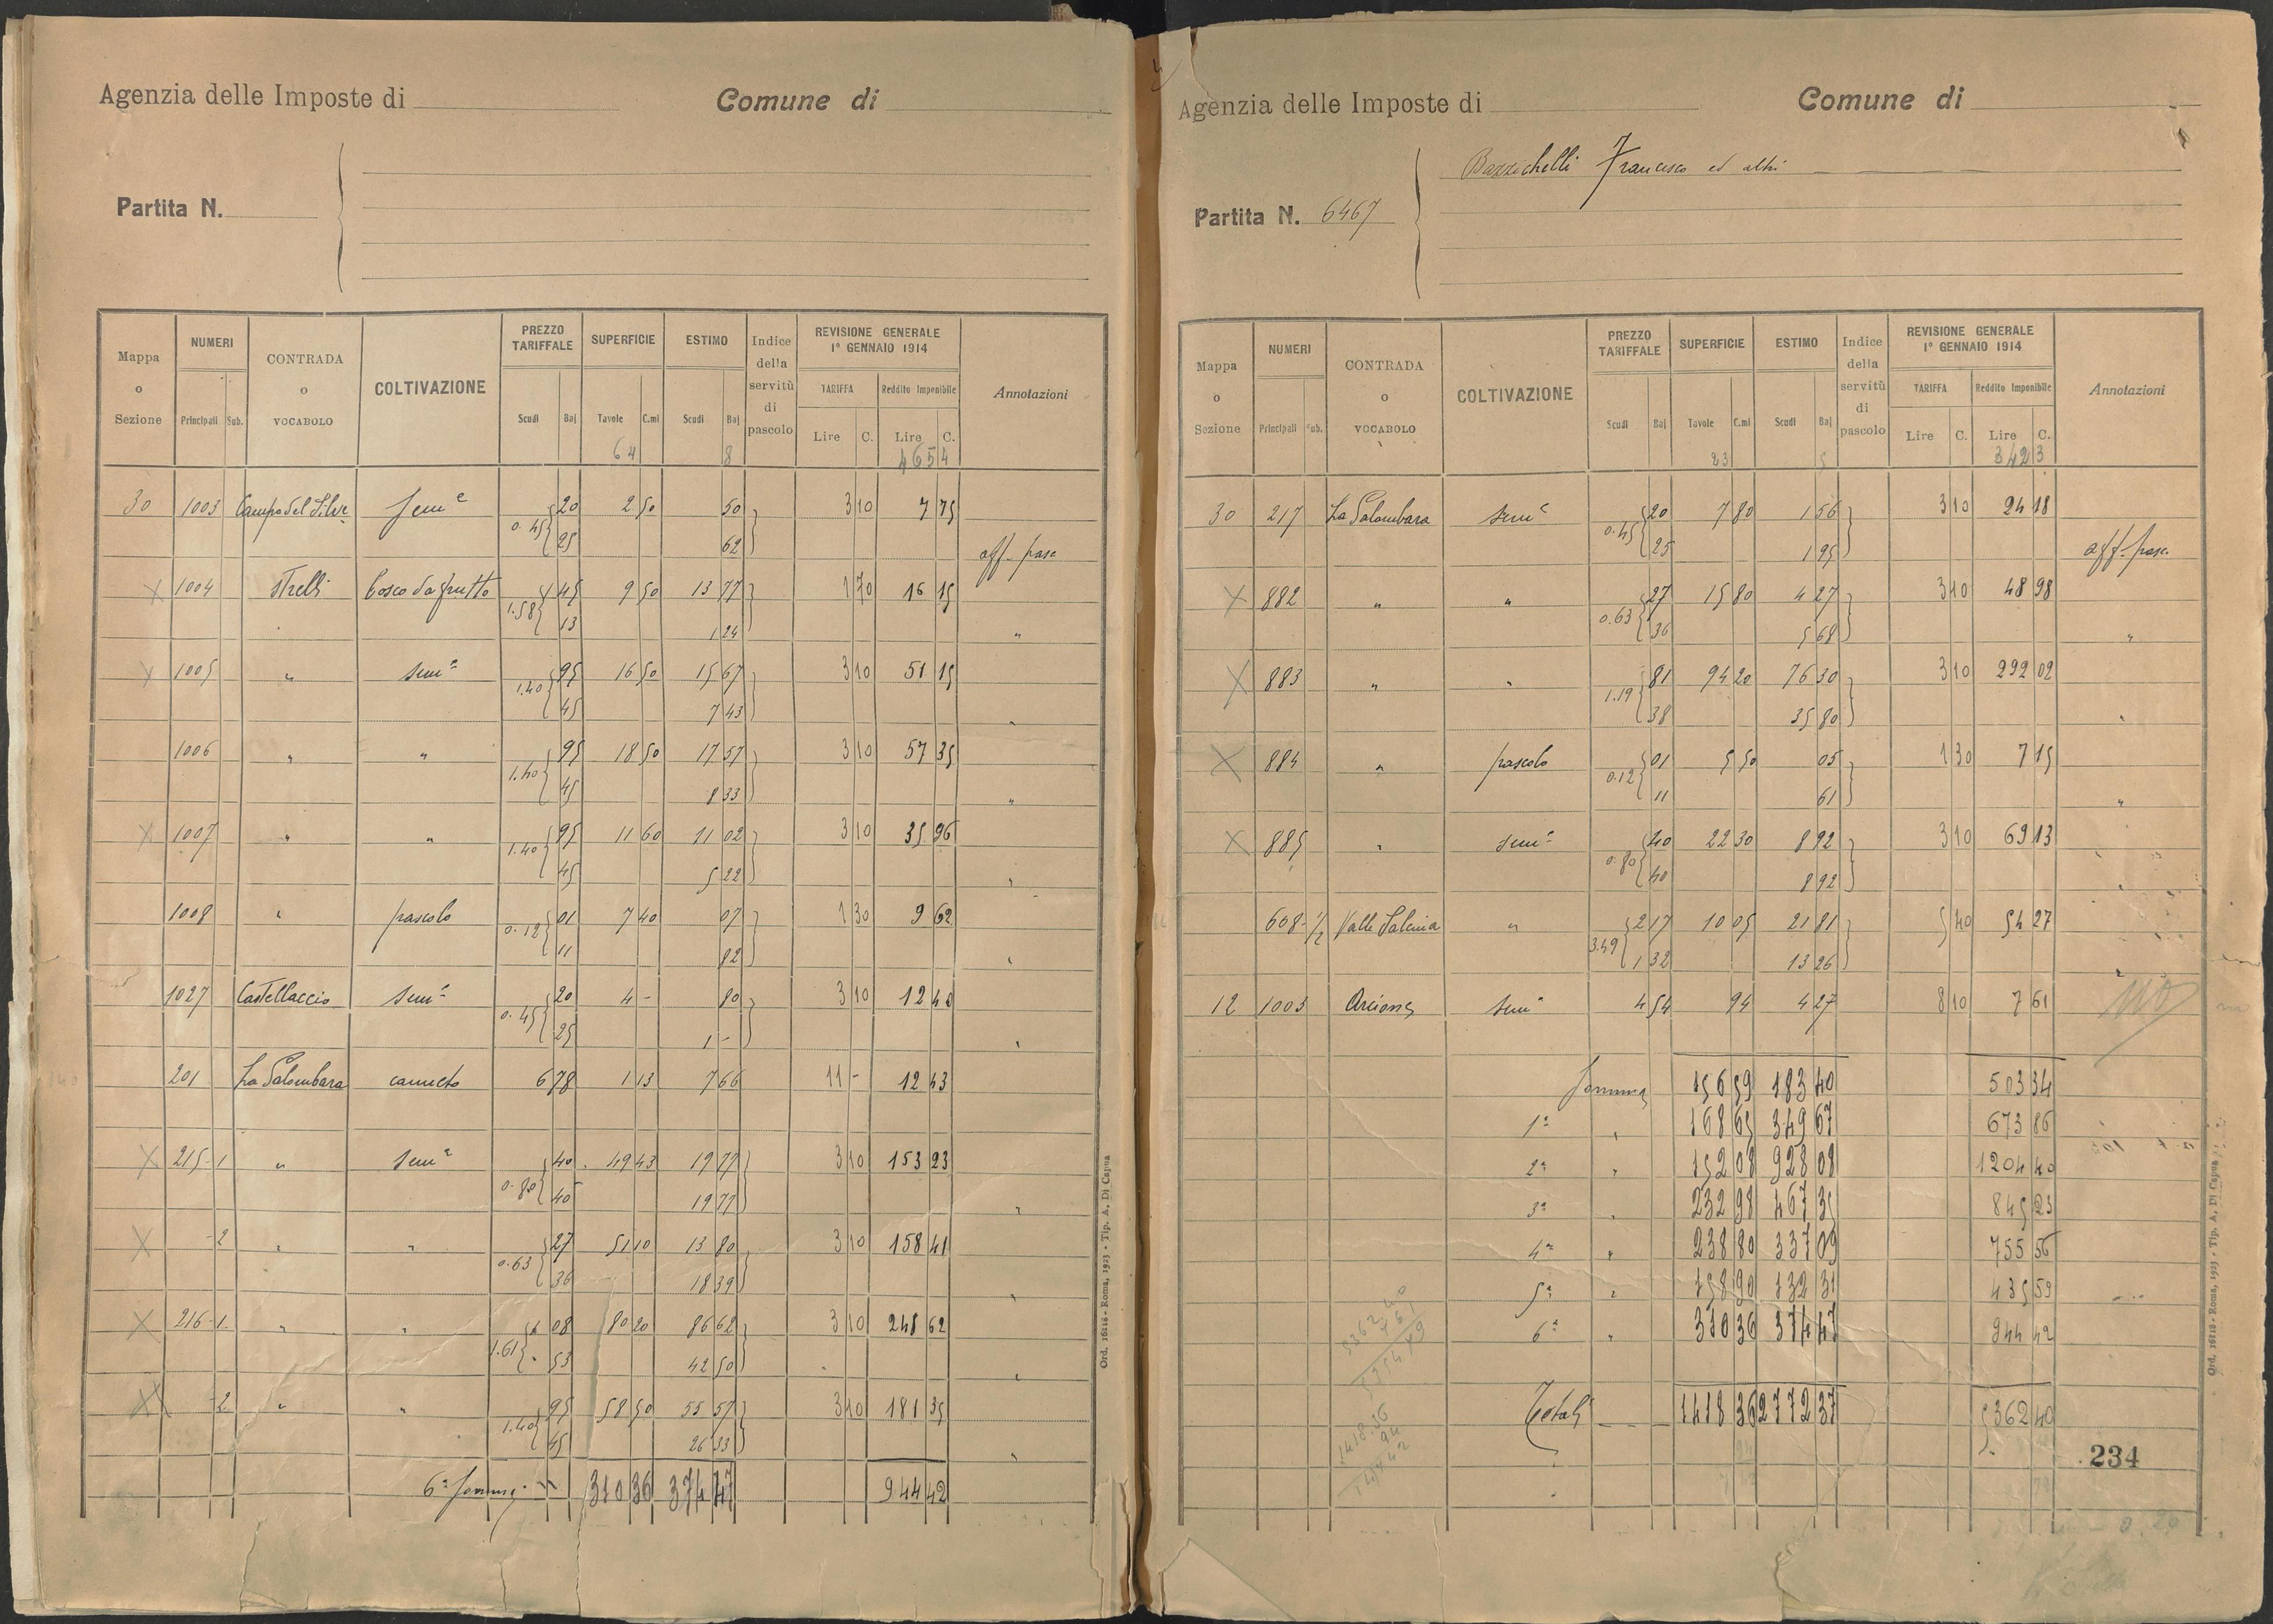 Agenzia delle Imposte di Comune di
Partita N.
Mappa o Sezione NUMERI Principali Sub. CONTRADA o VOCABOLO COLTIVAZIONE PREZZO TARIFFALE Scudi Baj SUPERFICIE Tavole C.mi ESTIMO Scudi Baj Indice della servitù di pascolo REVISIONE GENERALE 1° GENNAIO 1914 TARIFFA Lire C. Reddito Imponibile Lire C. Annotazioni
64 8 465 4
30 1003 Campo del Silve Sem.e 0.45 20 2 50 50 3 10 7 75
25 62 aff. pasc
X 1004 Strelli bosco da frutto 1.58 1 45 9 50 13 77 1 70 16 15
13 1 24 "
X 1005 " sem.e 1.40 95 16 50 15 67 3 10 51 15
45 7 43 "
1006 " " 1.40 95 18 50 17 57 3 10 57 35
45 8 33 "
X 1007 " " 1.40 95 11 60 11 02 3 10 35 96
45 5 22 "
1008 " pascolo 0.12 01 7 40 07 1 30 9 62
11 82 "
1027 Castellaccio sem.e 0.45 20 4 - 80 3 10 12 40
25 1 - "
201 La Palombara canneto 6 78 1 13 7 66 11 - 12 43
X 215-1 " sem.e 0.80 40 49 43 19 77 3 10 153 23
40 19 77 "
X -2 " " 0.63 27 51 10 13 80 3 10 158 41
36 18 39 "
X 216-1 " " 1.61 1 08 80 20 86 62 3 10 248 62
53 42 50 "
X -2 " " 1.40 95 58 50 55 57 3 10 181 35
45 26 33 "
6a Somma 310 36 374 47 944 42
Ord. 16118 - Roma, 1923 - Tip. A. Di Capua
Agenzia delle Imposte di Comune di
Bazzichelli Francesco ed altri
Partita N. 6467
Mappa o Sezione NUMERI Principali Sub. CONTRADA o VOCABOLO COLTIVAZIONE PREZZO TARIFFALE Scudi Baj SUPERFICIE Tavole C.mi ESTIMO Scudi Baj Indice della servitù di pascolo REVISIONE GENERALE 1° GENNAIO 1914 TARIFFA Lire C. Reddito Imponibile Lire C. Annotazioni
23 5 342 3
30 217 La Palombara sem.e 0.45 20 7 80 1 56 3 10 24 18
25 1 95 aff. pasc.
X 882 " " 0.63 27 15 80 4 27 3 10 48 98
36 5 68 "
X 883 " " 1.19 81 94 20 76 30 3 10 292 02
38 35 80 "
X 884 " pascolo 0.12 01 5 50 05 1 30 7 15
11 61 "
X 885 " sem.e 0.80 40 22 30 8 92 3 10 69 13
40 8 92 "
608-1/2 Valle Salcina " 3.49 2 17 10 05 21 81 5 40 54 27
1 32 13 26 "
12 1003 Arcione sem.e 4 54 94 4 27 8 10 7 61 no
Somma 156 59 183 40 503 34
1a " 168 65 349 67 673 86
2a " 152 08 928 08 1204 40
3a " 232 98 467 35 845 23
4a " 238 80 337 09 755 56
5a " 158 90 132 31 435 59
6a " 310 36 374 47 944 42
5362 40
7 61
5354 79
Totali 1418 36 2772 37 5362 40
1418.36
94
1417 42
234
Ord. 16118 - Roma, 1923 - Tip. A. Di Capua